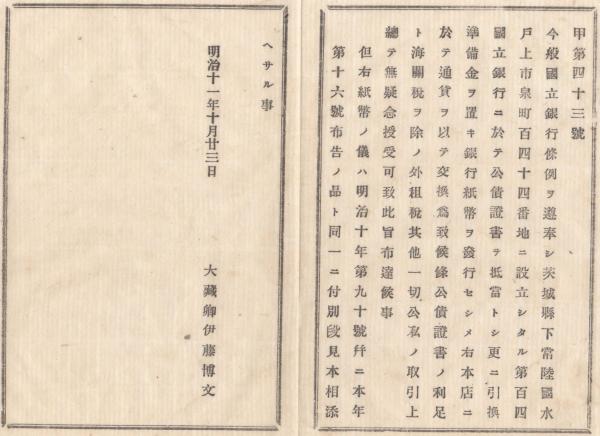 甲第四十三號
今般國立銀行條例ヲ遵奉シ茨城縣下常陸國水
戸上市泉町百四十四番地ニ設立シタル第百四
國立銀行ニ於テ公債證書ヲ抵當トシ更ニ引換
準備金ヲ置キ銀行紙幣ヲ發行セシメ右本店ニ
於テ通貨ヲ以テ交換爲致候條公債證書ノ利足
ト海關稅ヲ除ノ外租稅其他一切公私ノ取引上
總テ無疑念授受可致此旨布達候事
但右紙幣ノ儀ハ明治十年第九十號幷ニ本年
第十六號布告ノ品ト同一ニ付別段見本相添
ヘサル事
明治十一年十月廿三日
大藏卿伊藤博文